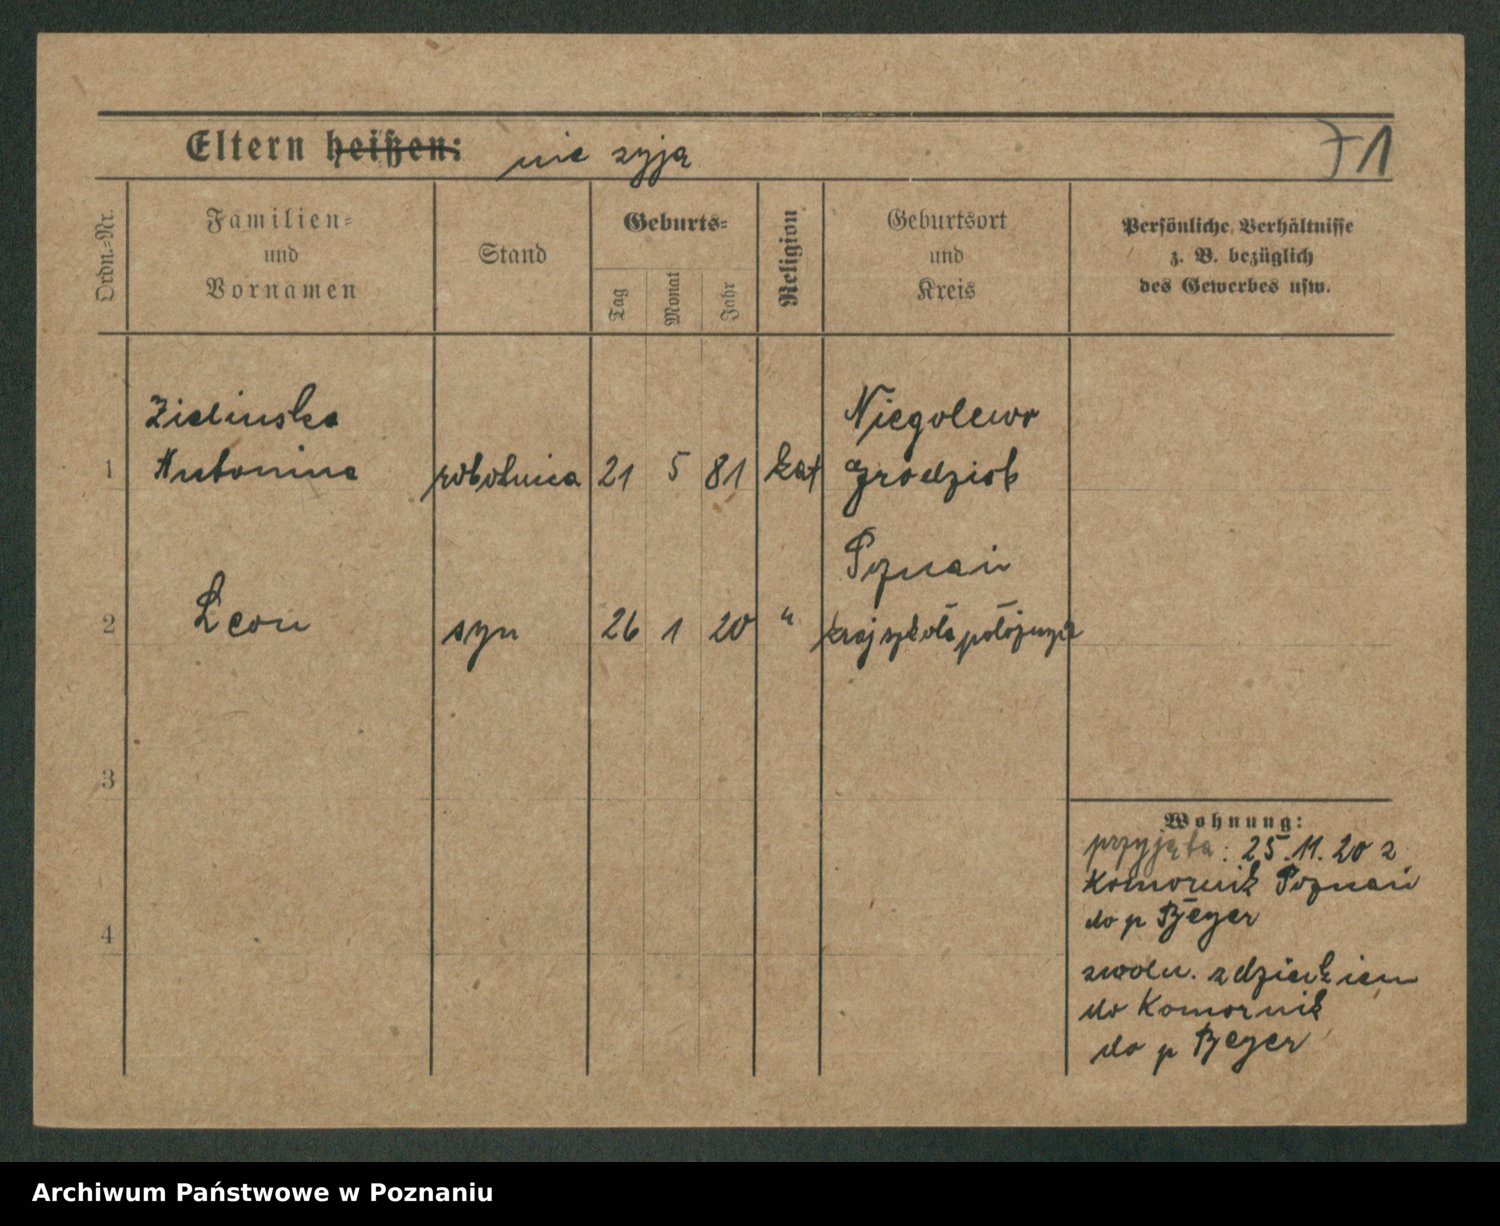 Eltern heißen: nie zyją
71
Ordn.=Nr.
Familien=
und
Vornamen
Stand
Geburts=
Tag
Monat
Jahr
Religion
Geburtsort
und
Kreis
Persönliche Verhältnisse
z. B. bezüglich
des Gewerbes usw.
Zielinska
Niegolewo
1 Antonina robotnica 21 5 81 kat Grodzisk
Poznań
2 Leon syn 26 1 20 " kraj szkoła położnych
3
4
Wohnung:
przyjęta: 25.11.20 z
Komornik Poznań
do p Beyer
zwoln. z dzieckiem
do Komornik
do p Beyer
Archiwum Państwowe w Poznaniu